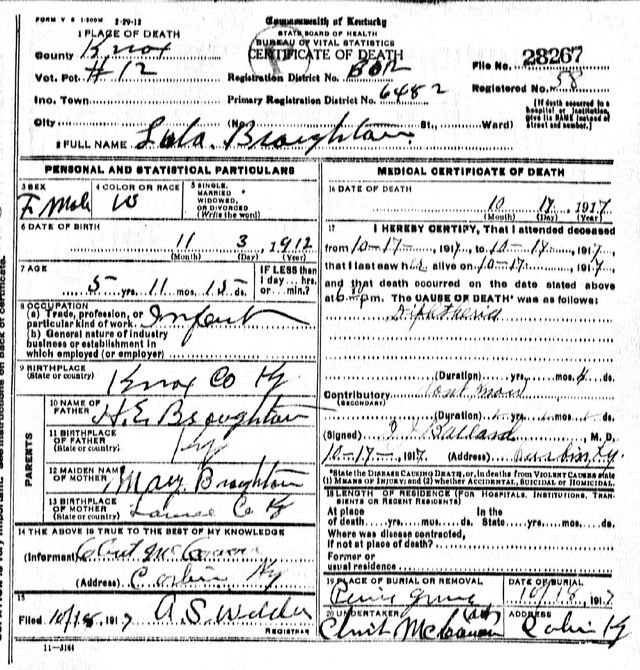 FORM V S 1-500M 2-29-12
Commonwealth of Kentucky
STATE BOARD OF HEALTH
BUREAU OF VITAL STATISTICS
CERTIFICATE OF DEATH
1 PLACE OF DEATH
County Knox
Vot. Pct. #12
Ino. Town
City
Registration District No.
Primary Registration District No. 6482
(No. St., Ward)
File No. 28267
Registered No. 58
[If death occurred in a hospital or institution, give its NAME instead of street and number.]
2 FULL NAME Lula Broughton
PERSONAL AND STATISTICAL PARTICULARS
3 SEX
F. Male
4 COLOR OR RACE
W
5 SINGLE, MARRIED, WIDOWED, OR DIVORCED
(Write the word)
6 DATE OF BIRTH
11 3, 1912
(Month) (Day) (Year)
7 AGE
5 yrs. 11 mos. ds.
IF LESS than
1 day... hrs.
or... min.?
8 OCCUPATION
(a) Trade, profession, or
particular kind of work. Infant
(b) General nature of industry
business or establishment in
which employed (or employer)
9 BIRTHPLACE
(State or country)
Knox Co Ky
PARENTS
10 NAME OF
FATHER H.E. Broughton
11 BIRTHPLACE
OF FATHER
(State or country) Ky
12 MAIDEN NAME
OF MOTHER Mary Broughton
13 BIRTHPLACE
OF MOTHER
(State or country) Co Ky
14 THE ABOVE IS TRUE TO THE BEST OF MY KNOWLEDGE
(Informant)
(Address) Corbin Ky
15
Filed 10/18, 1917 A.S.
REGISTRAR
11-3184
MEDICAL CERTIFICATE OF DEATH
16 DATE OF DEATH
10 17, 1917
(Month) (Day) (Year)
17 I HEREBY CERTIFY, That I attended deceased
from 10-17-, 1917, to 10-17-, 1917,
that I last saw her alive on 10-17-, 1917,
and that death occurred on the date stated above
at 6 pm. The CAUSE OF DEATH* was as follows:
Diphtheria
(Duration) yrs. mos. 4 ds.
Contributory
(SECONDARY)
(Duration) yrs. mos. ds.
(Signed) Ballard, M. D.
10-17-, 1917. (Address) Ky.
*State the DISEASE CAUSING DEATH, or, in deaths from VIOLENT CAUSES state
(1) MEANS OF INJURY; and (2) whether ACCIDENTAL, SUICIDAL or HOMICIDAL.
18 LENGTH OF RESIDENCE (FOR HOSPITALS, INSTITUTIONS, TRANSIENTS OR RECENT RESIDENTS)
At place In the
of death... yrs. mos. ds. State... yrs. mos. ds.
Where was disease contracted,
if not at place of death?
Former or
usual residence
19 PLACE OF BURIAL OR REMOVAL
Grove
DATE OF BURIAL
10/18, 1917
20 UNDERTAKER
ADDRESS
Corbin Ky